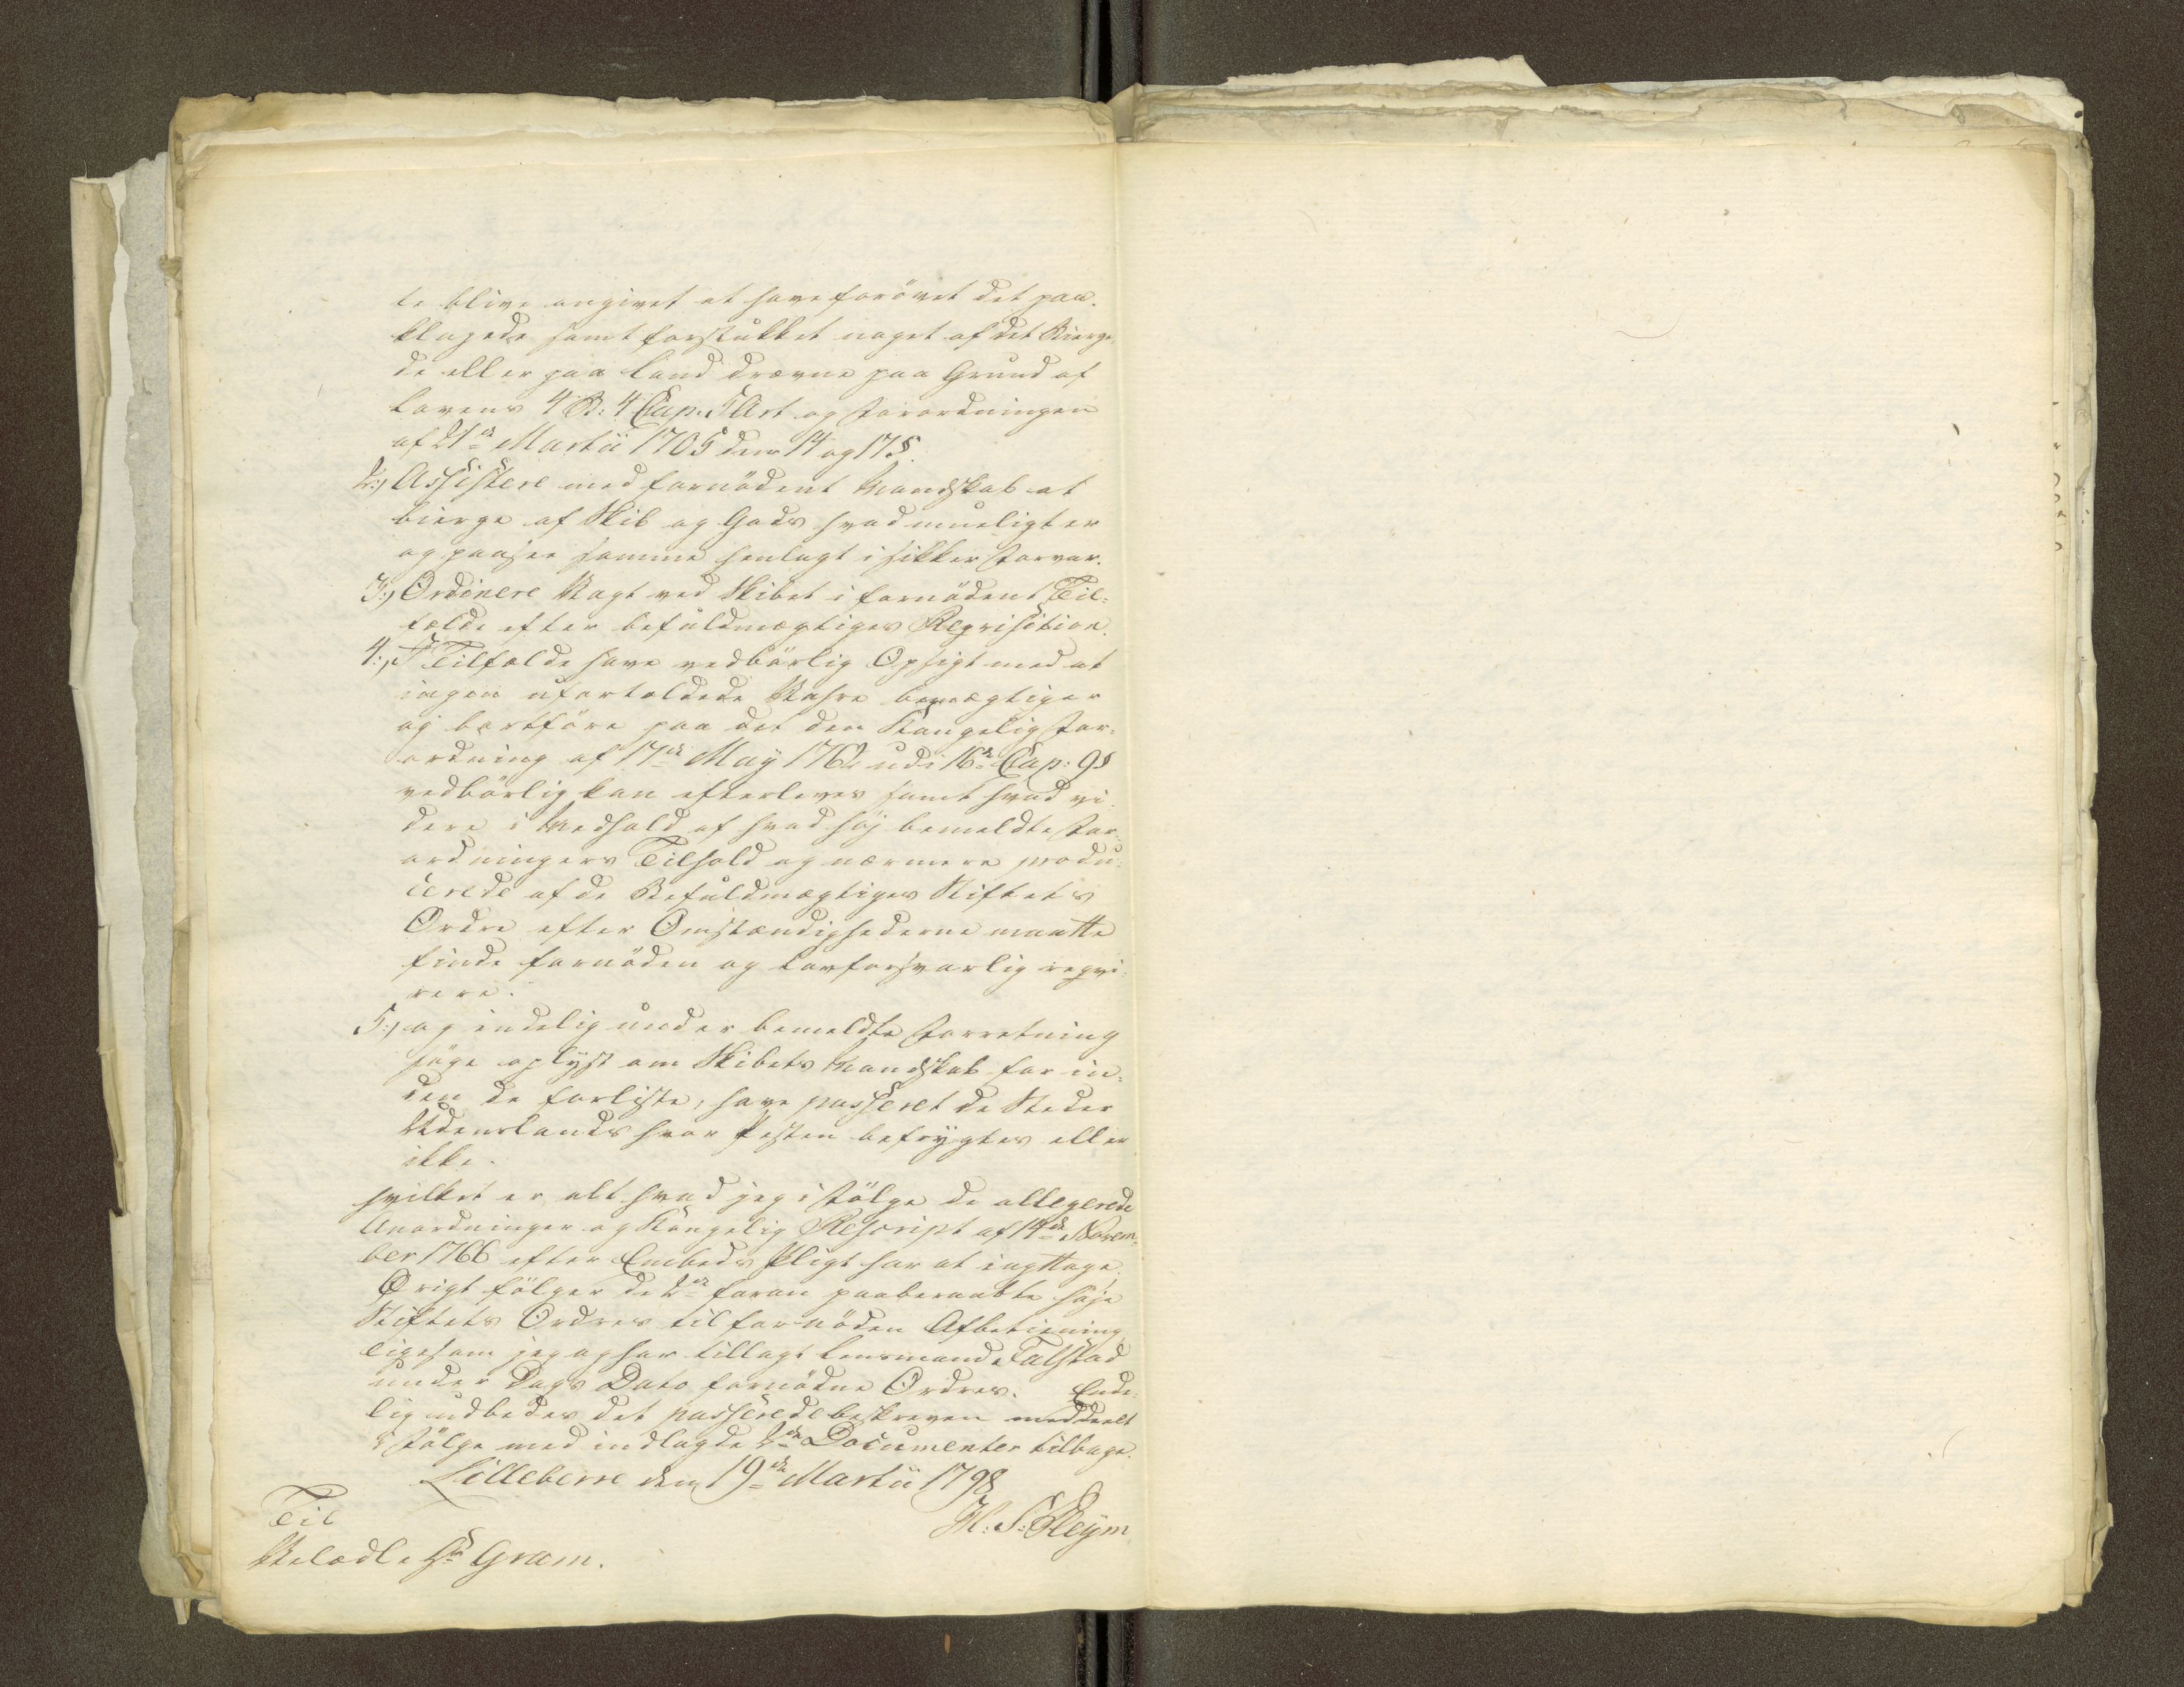 te blive angivet at have forövet det paa-
klagede samt forstukket noget af det Bierge-
de eller paa Land drevne paa Grund af
Lovens 4 B: 4 Cap. 5 Art og Forordningen
af 21de Martii 1705 dens 14 og 17 §.
2:) Assistere med fornödent Mandskab at
bierge af Skib og Gods hvad mueligt er
og paasee samme henlagt i sikker Forvar.
3:) Ordinere Vagt ved Skibet i fornödent Til-
fælde efter befuldmægtiges Reqvisition.
4:) I Tilfælde have vedbörlig Opsigt med at
ingen ufortoldede Vahre bemægtiges
og bortföre paa det den Kongelig For-
ordning af 17de May 1762 udi 16de Cap: 9 §
vedbörlig kan efterleves samt hvad vi-
dere i Medhold af hvad höj bemeldte For-
ordningers Tilhold og nærmere produ-
cerede af de Befuldmægtiges Stiftets
Ordre efter Omstændighederne maatte
finde fornöden og lovforsvarlig reqvi-
rere.
5:) og endelig under bemeldte Forretning
söge oplyst om Skibets Mandskab for in-
den de forliste, have passeret de Steder
Udenlands hvor Pesten befrygtes eller
ikke.
hvilket er alt hvad jeg i Fölge de allegerede
Anordninger og Kongelig Rescript af 14de Novem-
ber 1766 efter Embeds Pligt har at iagttage.
Örigt fölger de 2de foran paaberaabte höje
Stiftets Ordres til fornöden Afbetiening
ligesom jeg og har tillagt Lensmand Falstad
under Dags Dato fornödne Ordres. Ende-
lig udbedes det passerede beskreven meddeelt
i Fölge med indlagde 2de Documenter tilbage.
Lilleberre den 19de Martii 1798
H: S: Heÿm
Til
Velædle Hr Gram.